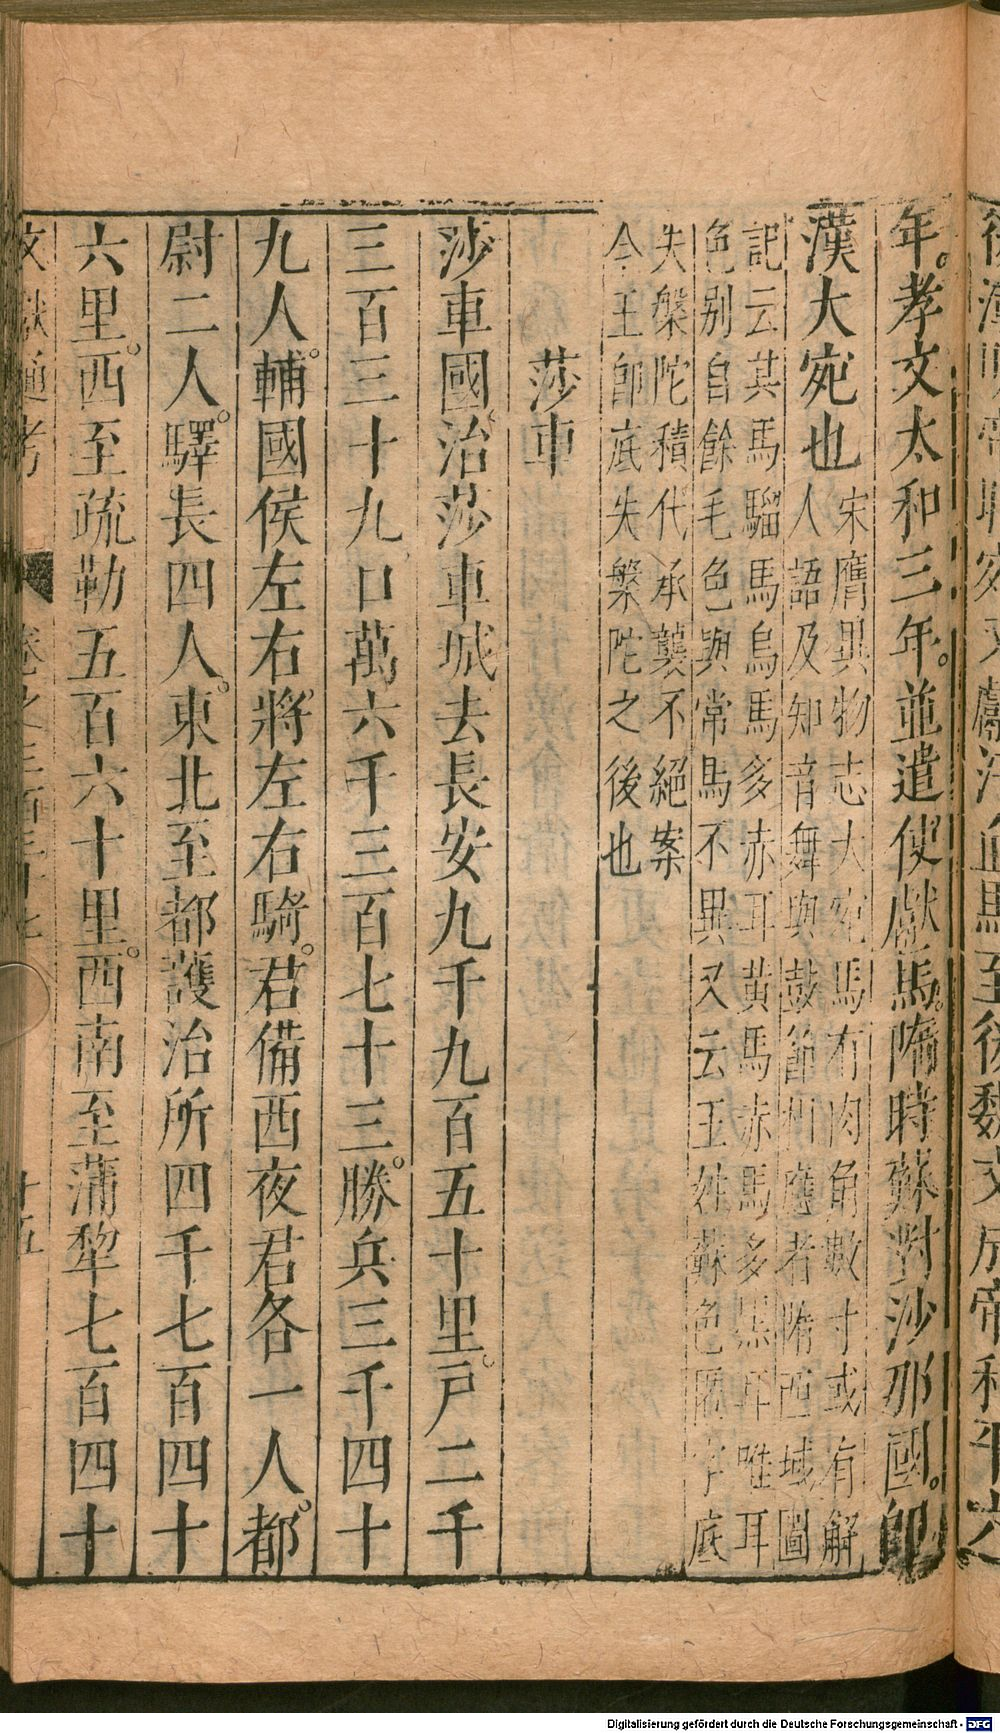 年。孝文太和三年。並遣使獻馬。隋時蘇對沙那國。卽
漢大宛也宋膺異物志大宛馬有肉角數寸或有解
人語及知音舞與鼓節相應者隋西域圖
記云其馬騮馬烏馬多赤耳黃馬赤馬多黑耳唯耳
色别自餘毛色與常馬不異又云王姓蘇色匿字底
失槃陀積代承襲不絕案
今王卽底失槃陀之後也
莎車
沙車國治莎車城去長安九千九百五十里。戸二千
三百三十九口萬六千三百七十三。勝兵三千四十
九人。輔國侯左右將左右騎。君備西夜君各一人。都
尉二人。驛長四人。東北至都護治所四千七百四十
六里。西至疏勒五百六十里。西南至蒲犂七百四十
文獻通考 卷之三百三十七 十五
Digitalisierung gefördert durch die Deutsche Forschungsgemeinschaft - DFG